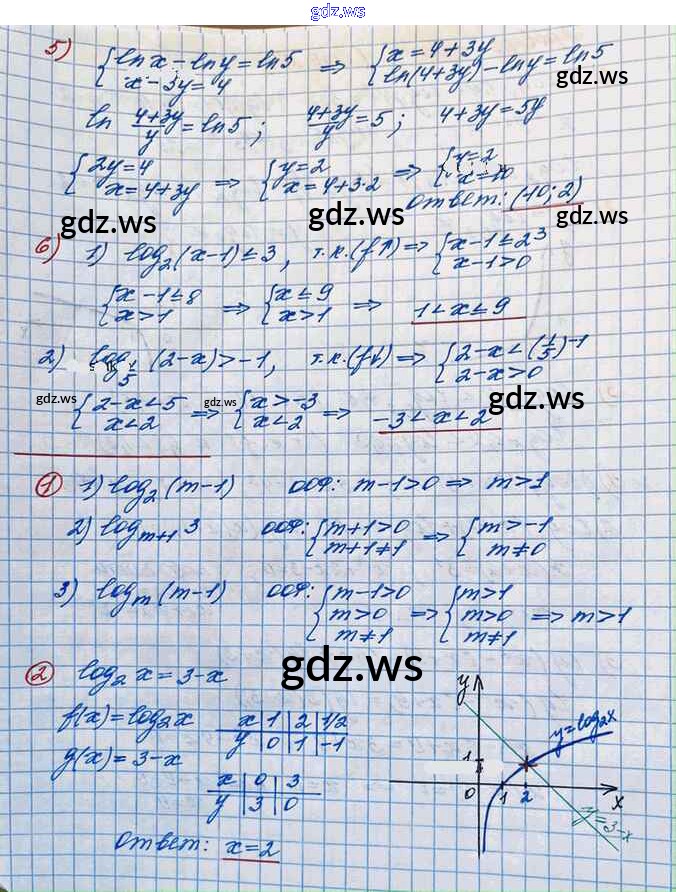 gdz.ws
5) { ln x - ln y = ln 5 ⇒ { x = 4 + 3y
x - 3y = 4 ln(4+3y) - ln y = ln 5
gdz.ws
ln (4+3y)/y = ln 5 ; (4+3y)/y = 5 ; 4 + 3y = 5y
{ 2y = 4 ⇒ { y = 2 ⇒ { y = 2
x = 4 + 3y x = 4 + 3·2 x = 10
Ответ: (10; 2)
gdz.ws gdz.ws gdz.ws
6) 1) log₂(x-1) ≤ 3, т.к. (f↑) ⇒ { x - 1 ≤ 2³
x - 1 > 0
{ x - 1 ≤ 8 ⇒ { x ≤ 9 ⇒ 1 < x ≤ 9
x > 1 x > 1
2) log_{1/5}(2-x) > -1, т.к. (f↓) ⇒ { 2 - x < (1/5)⁻¹
2 - x > 0
gdz.ws gdz.ws gdz.ws
{ 2 - x < 5 ⇒ { x > -3 ⇒ -3 < x < 2
x < 2 x < 2
① 1) log₂(m-1) ООФ: m - 1 > 0 ⇒ m > 1
2) log_{m+1} 3 ООФ: { m + 1 > 0 ⇒ { m > -1
m + 1 ≠ 1 m ≠ 0
3) log_m(m-1) ООФ: { m - 1 > 0 { m > 1
m > 0 ⇒ m > 0 ⇒ m > 1
m ≠ 1 m ≠ 1
gdz.ws
② log₂ x = 3 - x
f(x) = log₂ x
x | 1 | 2 | 1/2
y | 0 | 1 | -1
g(x) = 3 - x
x | 0 | 3
y | 3 | 0
Ответ: x = 2
y
y = log₂x
1
0 1 2 x
y = 3 - x
gdz.ws